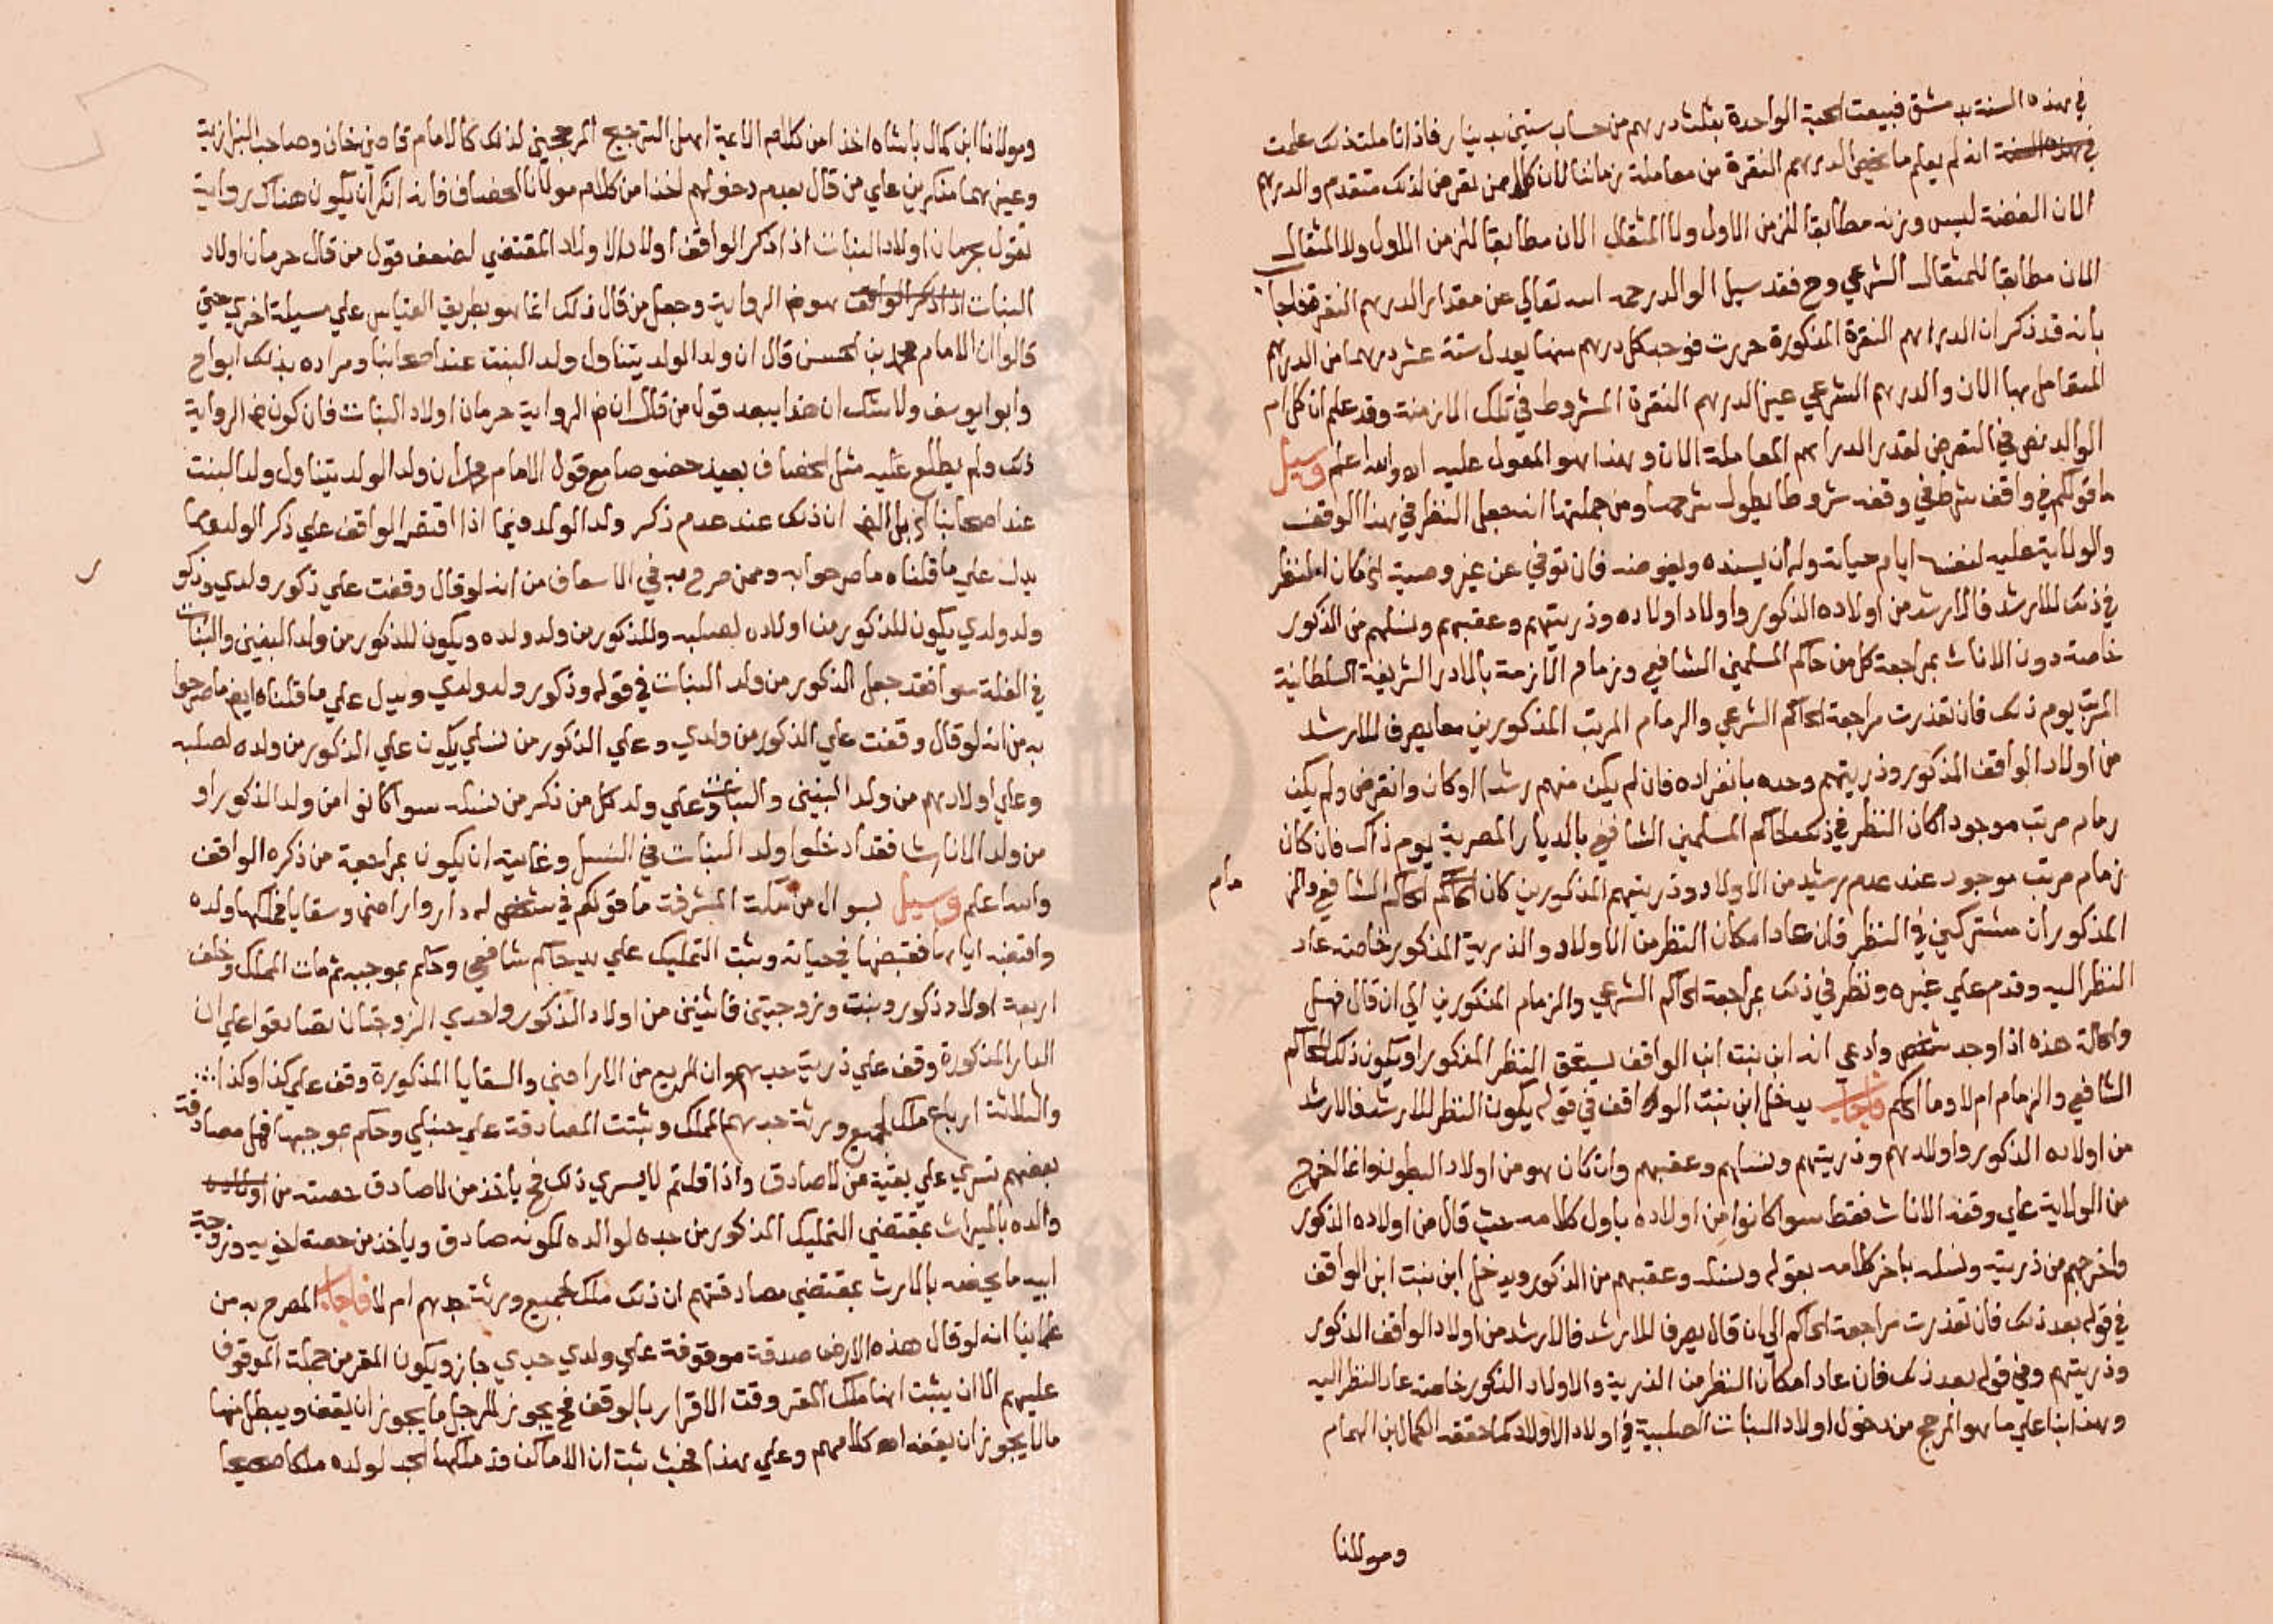 في هذه السنة بدمشق فبيعت الحبة الواحدة بثلث درهم من حساب ستين بدينار فاذا تاملت ذلك علمت
في هذه السنة انه لم يعلم ما يخص الدرهم النقرة من معاملة زماننا الان كل من تعرض لذلك متقدم والدرهم
الان الفضة ليس وزنه مطابقا للزمن الاول ولا المثقال الان مطابقا للزمن الاول ولا المثقال
الان مطابقا للمثقال الشرعي وح فقد سيل الوالد رحمه الله تعالي عن مقدار الدرهم النقرة فاجاب
بانه قد ذكر ان الدراهم النقرة المذكورة حررت فوجد كل درهم منها يعدل ستة عشر درهما من الدراهم
المتعامل بها الان والدرهم الشرعي غير الدرهم النقرة المشروط في تلك الازمنة وقد علم ان كلام
الوالد نص في التعرض لقدر الدراهم المعاملة الان وهذا هو المعول عليه اه والله اعلم وسيل
ما قولكم في واقف شرط في وقفه شروطا يطول شرحها ومن جملتها انه جعل النظر في هذا الوقف
والولاية عليه لنفسه ايام حياته وله ان يسنده ويفوضه فان توفي عن غير وصية لاخر كان النظر
في ذلك للارشد فالارشد من اولاده الذكور واولاد اولاده وذريتهم وعقبهم ونسلهم من الذكور
خاصة دون الاناث بمراجعة كل من حاكم المسلمين الشافعي وزمام الازمة بالادر الشريفة السلطانية
المرتب يوم ذلك فان تعذرت مراجعة الحاكم الشرعي والزمام المرتب المذكورين معا يصرف للارشد
من اولاد الواقف المذكور وذريتهم وحده بانفراده فان لم يكن منهم رشدا او كان وانقرض ولم يكن
زمام مرتب موجود اكان النظر في ذلك لحاكم المسلمين الشافعي بالديار المصرية يوم ذاك فان كان
زمام مرتب موجود عند عدم رشيد من الاولاد وذريتهم المذكورين كان الحاكم الحاكم الشافعي والز
مام
المذكوران مشتركين في النظر فان عاد امكان النظر من الاولاد والذرية المذكور خاصة عاد
النظر اليه وقدم علي غيره ونظر في ذلك بمراجعة الحاكم الشرعي والزمام المذكورين الي ان قال فهل
والحالة هذه اذا وجد شخص وادعي انه ابن بنت ابن الواقف يستحق النظر المذكور او يكون ذلك للحاكم
الشافعي والزمام ام لا وما الحكم فاجاب يدخل ابن بنت الواقف في قوله يكون النظر للارشد فالارشد
من اولاده الذكور واولادهم وذريتهم ونسلهم وعقبهم وان كان هو من اولاد البطون وانما اخرج
من الولاية علي وقفه الاناث فقط سوا كانوا من اولاده باول كلامه حيث قال من اولاده الذكور
واخرجهم من ذريته ونسله باخر كلامه بقوله ونسله وعقبهم من الذكور ويدخل ابن بنت ابن الواقف
في قوله بعد ذلك فان تعذرت مراجعة الحاكم الي ان قال يصرف للارشد فالارشد من اولاد الواقف الذكور
وذريتهم وفي قوله بعد ذلك فان عاد امكان النظر من الذرية والاولاد الذكور خاصة عاد النظر اليه
وهذا بناء علي ما هو المرجح من دخول اولاد البنات الصلبية في اولاد الاولاد كما حققه الكمال ابن الهمام
ومولانا
ومولانا ابن كمال باشاه اخذا من كلام الائمة اهل الترجيح المرجحين لذلك كالامام قاضي خان وصاحب البزازية
وغيرهما منكرين علي من قال بعدم دخولهم اخذا من كلام مولانا الخصاف فانه انكر ان يكون هناك رواية
تقول بحرمان اولاد البنات اذا ذكر الواقف اولاد الاولاد المقتضي لضعف قول من قال حرمان اولاد
البنات اذا ذكر الواقف هو ض الرواية وجعل من قال ذلك انما هو بطريق القياس علي مسيلة اخري حتي
قالوا ان الامام محمد بن الحسن قال ان ولد الولد يتناول ولد البنت عند اصحابنا ومراده بذلك ابو ح
وابو ايوسف ولا شك ان هذا يبعد قول من قال ان ض الرواية حرمان اولاد البنات فان كون ض الرواية
ذلك ولم يطلع عليه مثل الخصاف بعيد خصوصا مع قول الامام محمد ان ولد الولد يتناول ولد البنت
عند اصحابنا ان ذلك عند عدم ذكر ولد الولد فيما اذا اقتصر الواقف علي ذكر الولد ومما
يدل علي ما قلناه ما صرحوا به وممن صرح به في الاسعاف من انه لو قال وقفت علي ذكور ولدي وذكور
ولد ولدي يكون للذكور من اولاده لصلبه وللذكور من ولد ولده ويكون للذكور من ولد البنين والبنات
في الغلة سوا فقد جعل الذكور من ولد البنات في قوله وذكور ولد ولدي ويدل علي ما قلناه ايض ما صرحوا
به من انه لو قال وقفت علي الذكور من ولدي وعلي الذكور من نسلي يكون علي الذكور من ولده لصلبه
وعلي اولادهم من ولد البنين والبنات وعلي ولد كل من ذكر من نسله سوا كانوا من ولد الذكور او
من ولد الاناث فقد ادخلوا ولد البنات في النسل وغايته ان يكون بمراجعة من ذكره الواقف
والله اعلم وسيل بسوال من مكة المشرفة ما قولكم في شخص له دار واراضي وسقايا فملكها ولده
واقبضه اياها فقبضها في حياته وثبت التمليك علي يد حاكم شافعي وحكم بموجبه ثم مات المملك وخلف
اربعة اولاد ذكور وبنت وزوجتين فاثنين من اولاد الذكور واحدي الزوجتان تصادقوا علي ان
الدار المذكورة وقف علي ذرية جدهم وان الربع من الاراضي والسقايا المذكورة وقف علي كذا وكذا
والثلاثة ارباع ملك لجميع ورثة جدهم المملك وثبتت المصادقة علي حنبلي وحكم بموجبها فهل مصادقة
بعضهم تسري علي بقية من لا صادق واذا قلتم لا يسري ذلك فح ياخذ من لا صادق حصته من اولاده
والده بالميراث بمقتضي التمليك المذكور من جده لوالده لكونه صادق وياخذ من حصة اخويه وزوجة
ابيه ما يخصه بالارث بمقتضي مصادقتهم ان ذلك ملك لجميع ورثة جدهم ام لا فاجاب المصرح به من
علماينا انه لو قال هذه الارض صدقة موقوفة علي ولدي جدي جاز ويكون المقر من جملة الموقوف
عليهم الا ان يثبت انها ملك المقر وقت الاقرار بالوقف فح يجوز للرجل ما يجوز ان يقف ويبطل منها
مالا يجوز ان يقفه اه كلامهم وعلي هذا فحيث ثبت ان الاماكن قد ملكها الجد لولده ملكا صحيحا